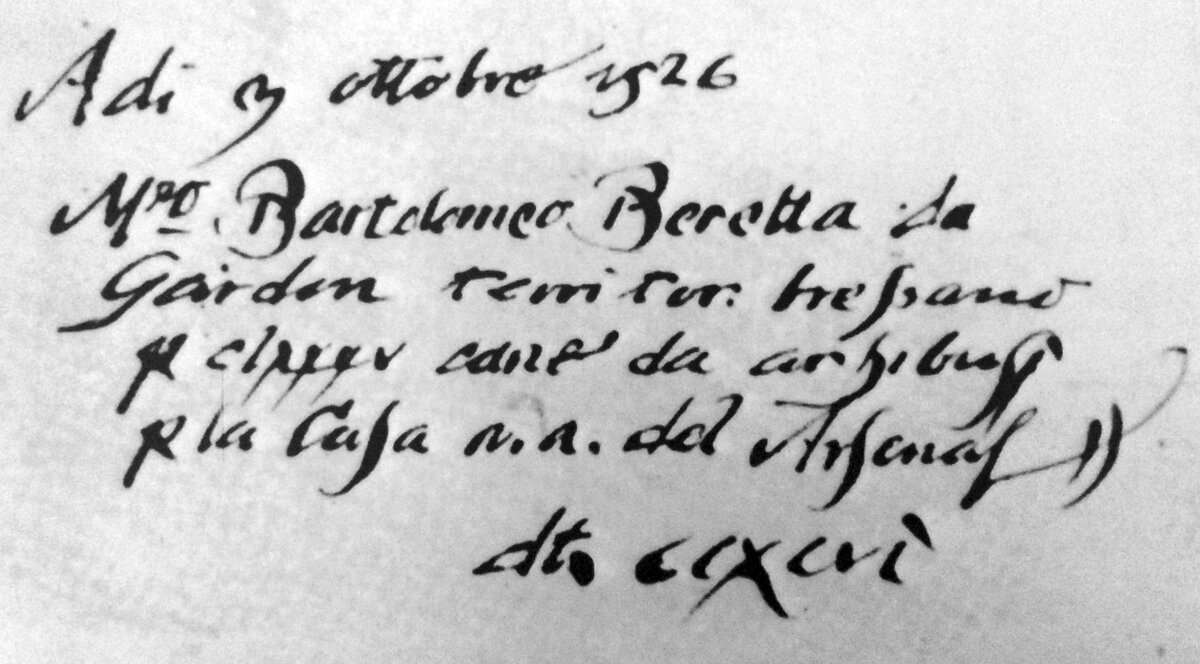 Adi 3 ottobre 1526
Mro Bartolomeo Beretta da
Gardon territor: bressano
p clxxxv cane da archibusi
p la Casa n.a. del Arsenal
dto ccxcvi